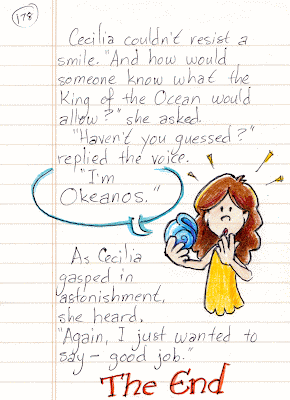 178
Cecilia couldn't resist a
smile. "And how would
someone know what the
King of the Ocean would
allow?" she asked.
"Haven't you guessed?"
replied the voice.
"I'm
Okeanos."
As Cecilia
gasped in
astonishment,
she heard,
"Again, I just wanted to
say – good job."
The End